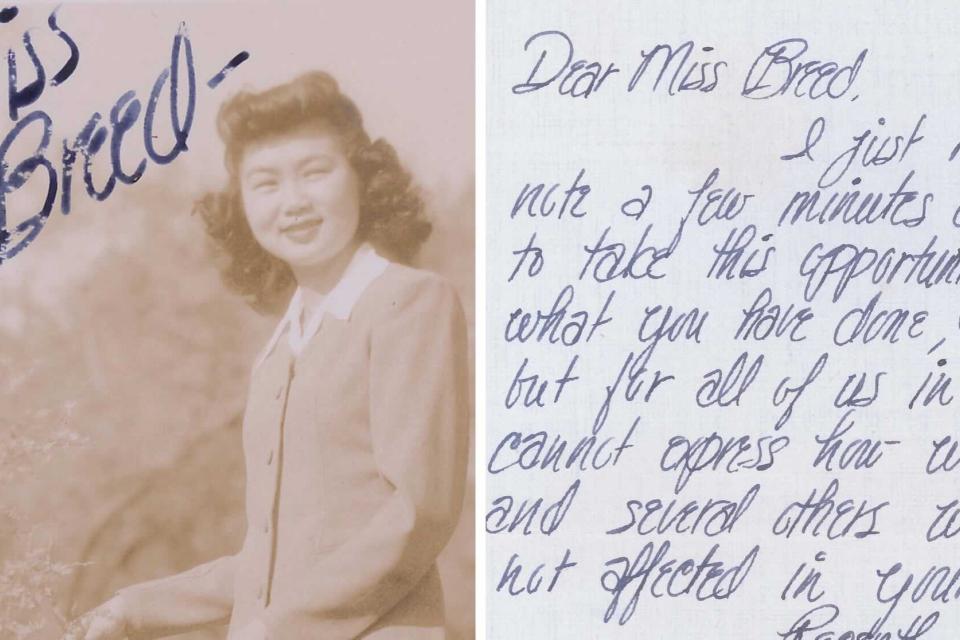 Miss
Breed-
Dear Miss Breed,
I just
note a few minutes
to take this opportun
what you have done,
but for all of us in
cannot express how
and several others
not affected in your
Recently